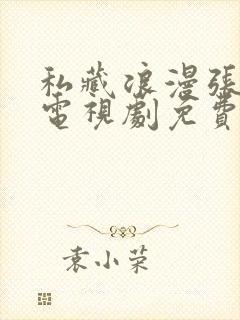 私藏浪漫張
電視劇免費
袁小荣